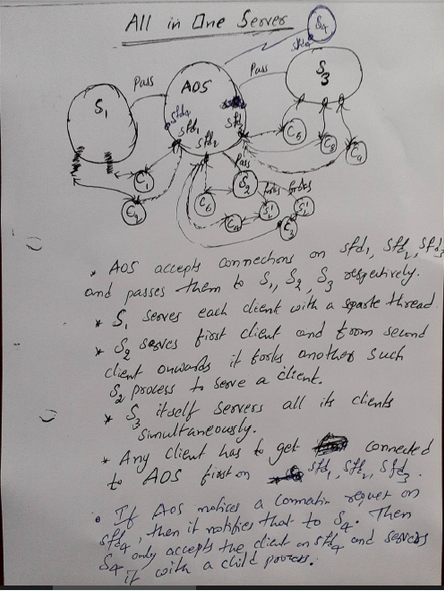 All in One Server
S4
sfd4
Pass
AOS
Pass
S3
S1
sfd4
sfd1
sfd3
sfd2
C5
C8
C9
C1
Pass
S2
forks
forks
C4
C6
S2'
S2'
C2
* AOS accepts connections on sfd1, sfd2, sfd3
and passes them to S1, S2, S3 respectively.
* S1 serves each client with a sparte thread
* S2 serves first client and from second
client onwards it forks another such
S2 process to serve a client.
* S3 itself servers all its clients
simultaneously.
* Any client has to get connected
to AOS first on sfd1, sfd2, sfd3.
* If AOS notices a connection request on
sfd4, then it notifies that to S4. Then
S4 only accepts the client on sfd4 and servers
it with a child process.